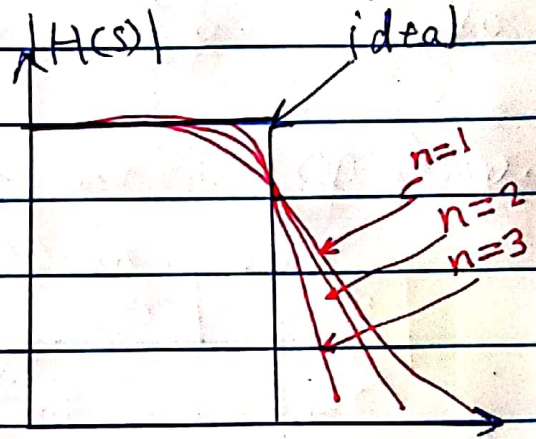 |H(S)|
ideal
n=1
n=2
n=3